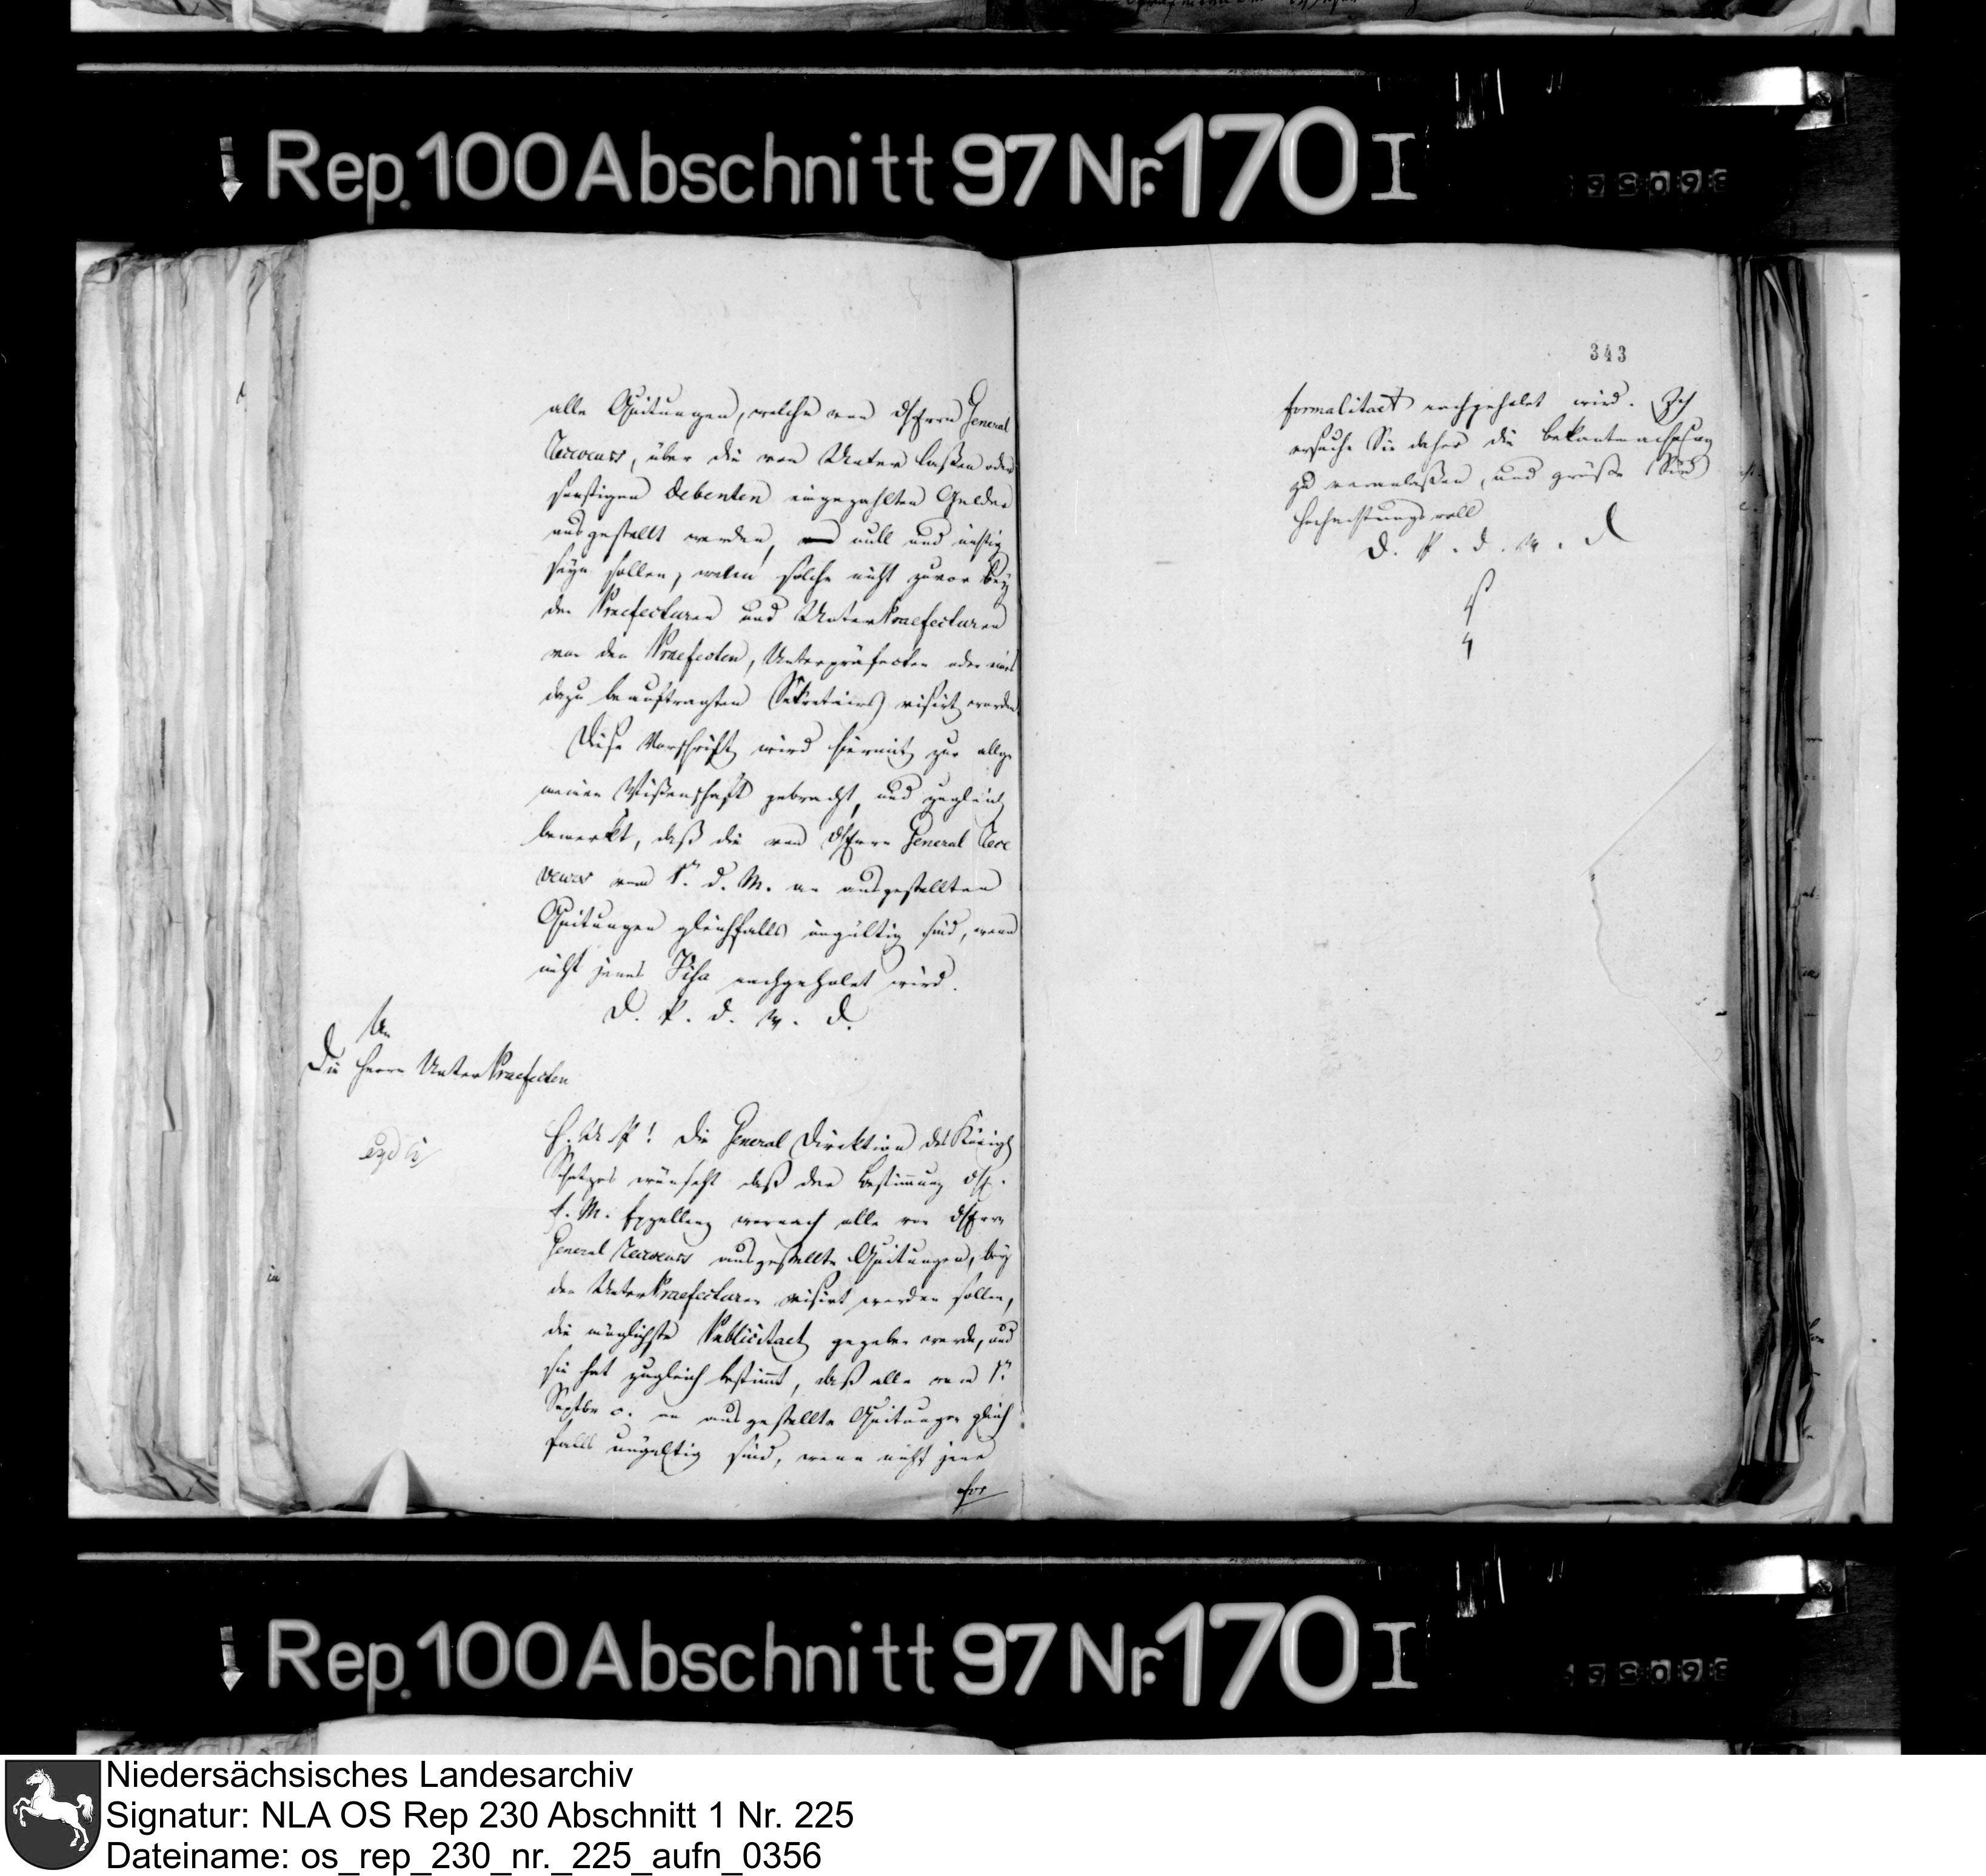 Rep. 100 Abschnitt 97 Nr. 170 I
alle Quitungen, welche von d Herrn General
Receveurs, über die von Unter Cassen oder
sonstigen Debenten eingezahlten Gelder
ausgestellt werden, null und nichtig
seyn sollen, wenn solche nicht zuvor bey
den Praefecturen und Unter Praefecturen
von den Praefecten, Unterpräfecten oder eines
dazu beauftragten Sekretairs visirt worden.
Diese Vorschrift wird hiermit zur allge
meinen Wißenschaft gebracht, und zugleich
bemerkt, daß die von d Herrn General Rece
veurs vom 1n d. M. an ausgestellten
Quitungen gleichfalls ungültig sind, wenn
nicht jenes Visa nachgeholet wird.
D. P. d. W. D.
An
Die Herrn Unter Praefecten
H. U. P! Die General Direktion des Königl
Schatzes wünscht daß der Bestimmung
wornach alle von d Herrn
General Receveurs ausgestellte Quitungen, bey
den Unter Praefecturen visirt werden sollen,
die möglichste Publicitaet gegeben werde, und
sie hat zugleich bestimmt, daß alle vom 1n
Septbr c. an ausgestellte Quitungen gleich
falls ungültig sind, wenn nicht jene
for
343
formalitaet nachgeholet wird. Ich
ersuche Sie daher die Bekantmachung
zu veranlaßen, und grüße Sie
hochachtungsvoll
D. P. d. W. D
Rep. 100 Abschnitt 97 Nr. 170 I
Niedersächsisches Landesarchiv
Signatur: NLA OS Rep 230 Abschnitt 1 Nr. 225
Dateiname: os_rep_230_nr._225_aufn_0356